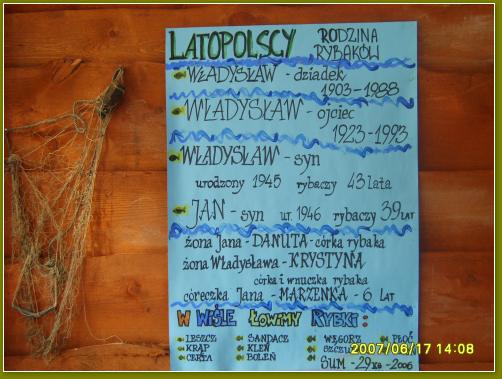 LATOPOLSCY RODZINA RYBAKÓW
WŁADYSŁAW - dziadek
1903 - 1988
WŁADYSŁAW - ojciec
1923 - 1993
WŁADYSŁAW - syn
urodzony 1945 rybaczy 43 lata
JAN - syn ur. 1946 rybaczy 39 LAT
żona Jana - DANUTA - córka rybaka
żona Władysława - KRYSTYNA
córka i wnuczka rybaka
córeczka Jana - MARZENKA - 6 LAT
W WIŚLE ŁOWIMY RYBKI :
LESZCZ SANDACZ WĘGORZ PŁOĆ
KRĄP KLEŃ SZCZU
CERTA BOLEŃ SUM - 29 KG - 2006
2007/06/17 14:08